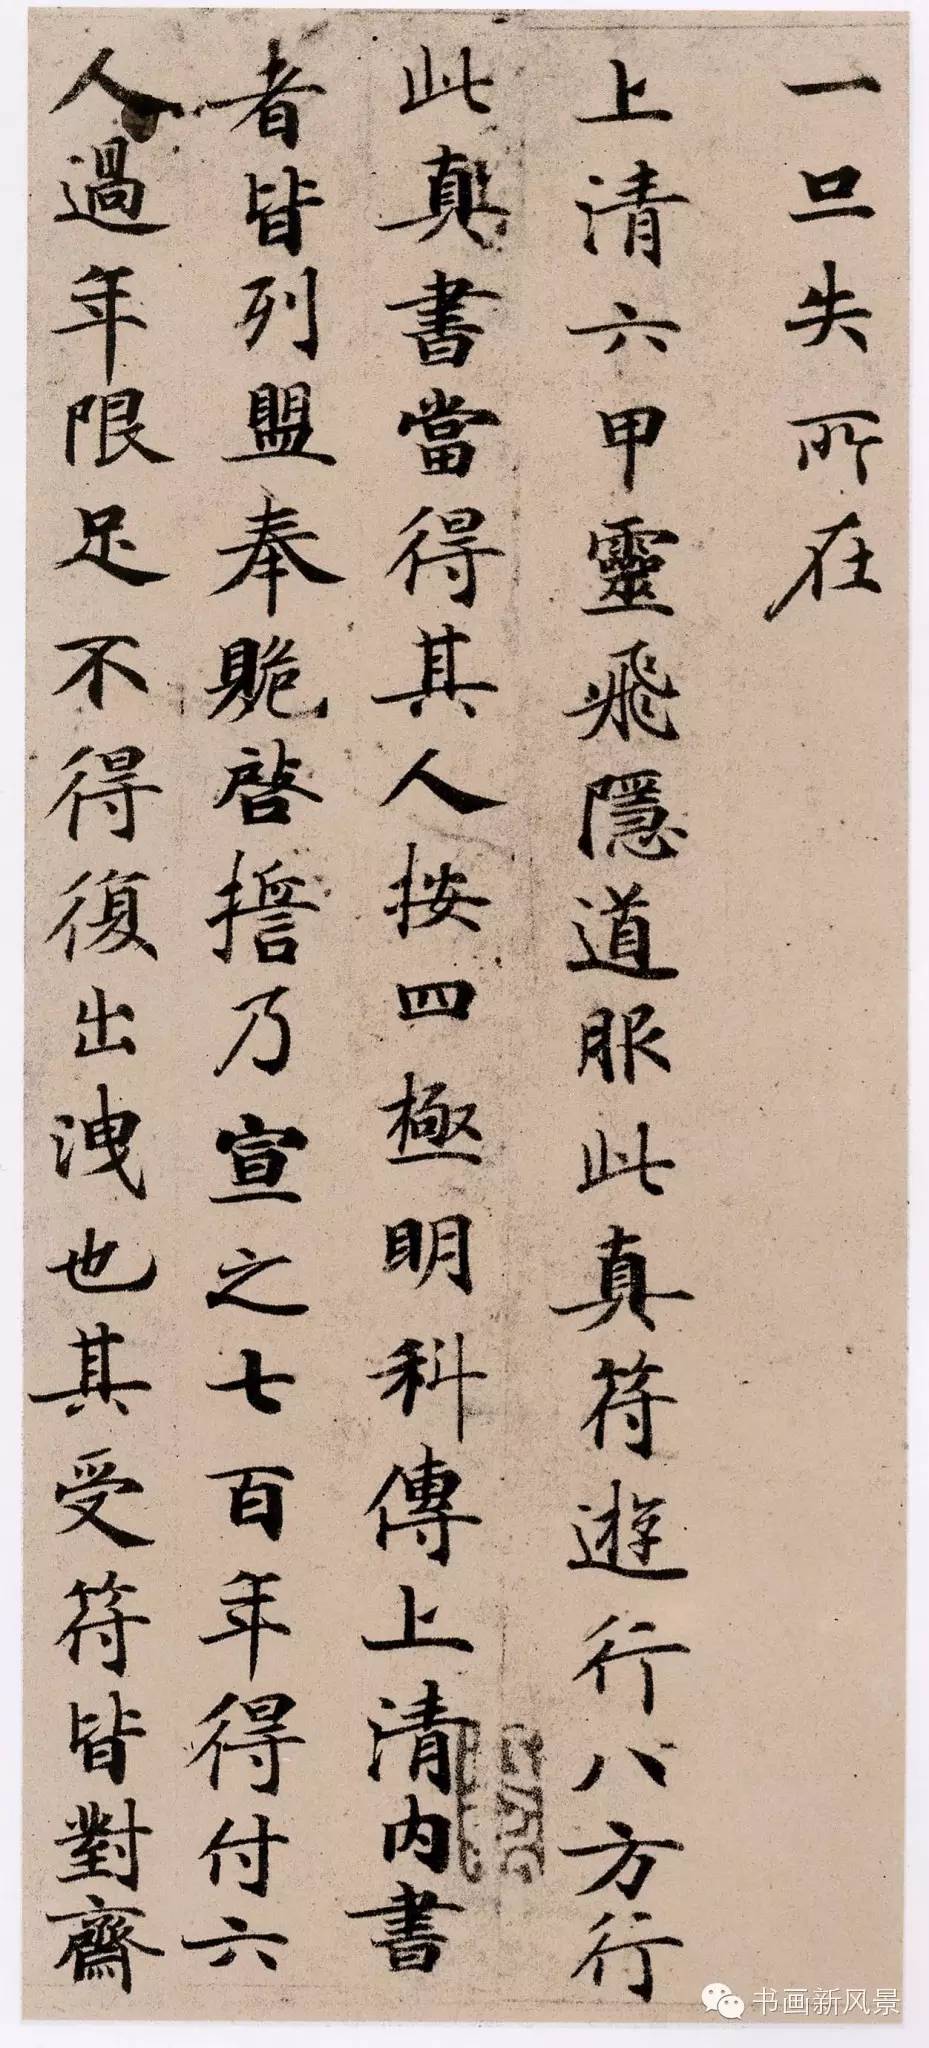 一旦失所在
上清六甲靈飛隱道服此真符遊行八方行
此真書當得其人按四極明科傳上清內書
者皆列盟奉貺啓擔乃宣之七百年得付六
人過年限足不得復出洩也其受符皆對齋
书画新风景